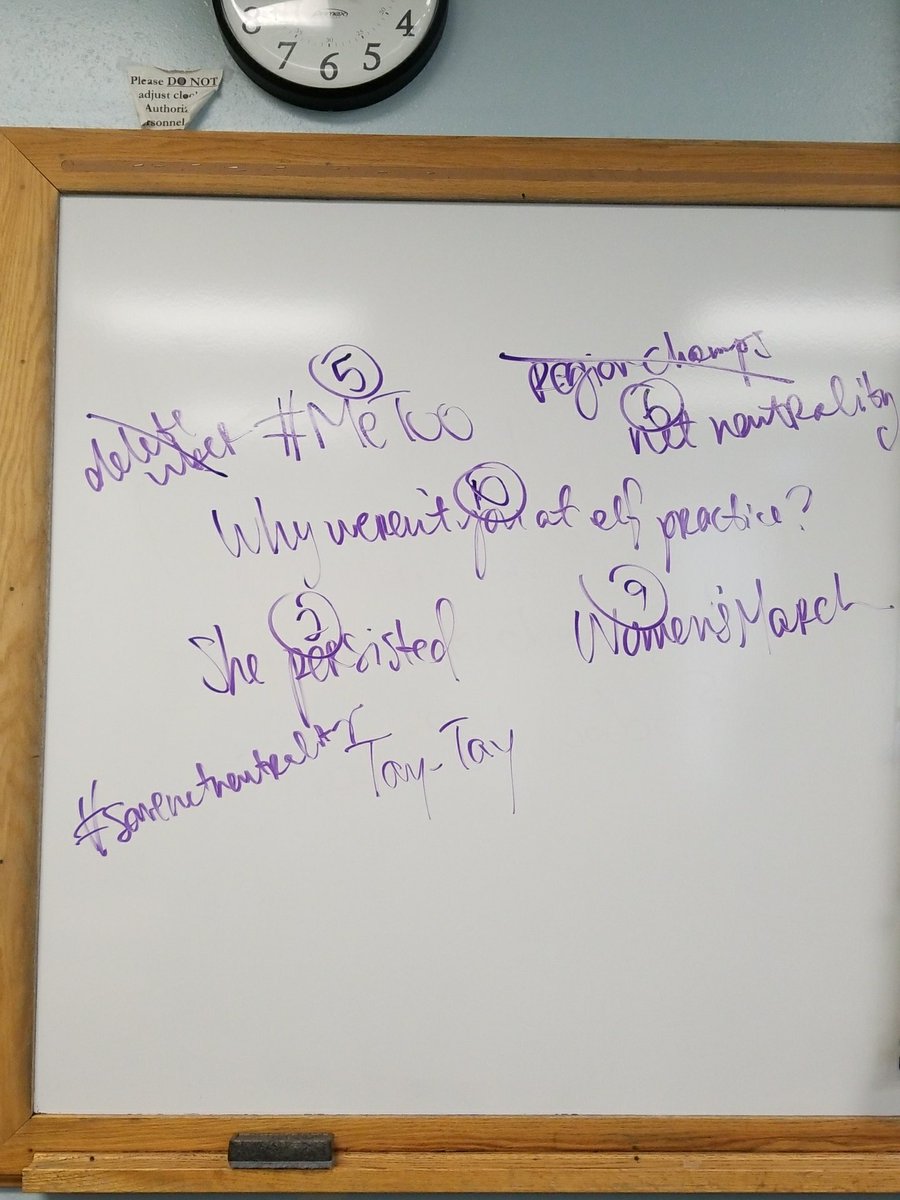 8 7 6 5 4
Please DO NOT
adjust cloc
Authoriz
rsonnel
region champs
5
delete
uber
#MeToo
6
net neutrality
10
Why weren't you at elf practice?
9
She persisted
Women's March
#savenetneutrality
Tay-Tay